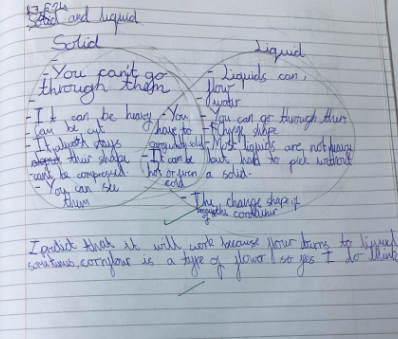 Solid and liquid
Solid
Liquid
- You can't go
through them
- Liquids can,
flow
- water
- It can be heavy
can be cut
- It stays
their shape
- cant be compressed
- You can see
them
- You
have to
- It can be
hot or
cold
- You can go through them
- shape
- Most liquids are not heavy
but hard to pick without
a solid.
- They change shape if
the container
I predict that it will work because flour turns to liquid
cornflour is a type of flower so yes I do think